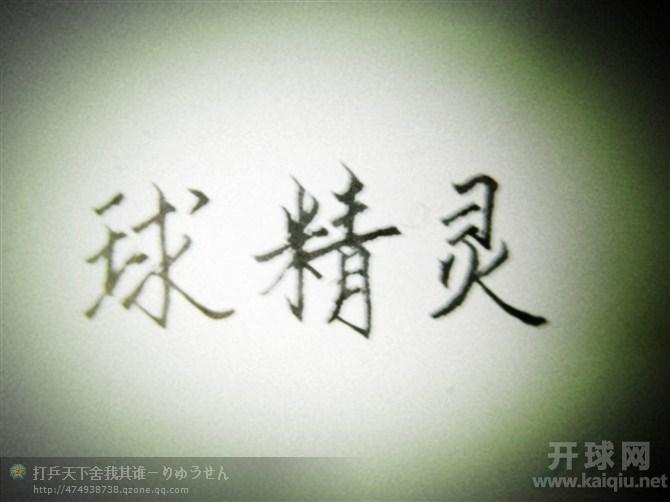 球精灵
打乒天下舍我其谁－りゅうせん
http://474938738.qzone.qq.com
开球网
www.kaiqiu.net